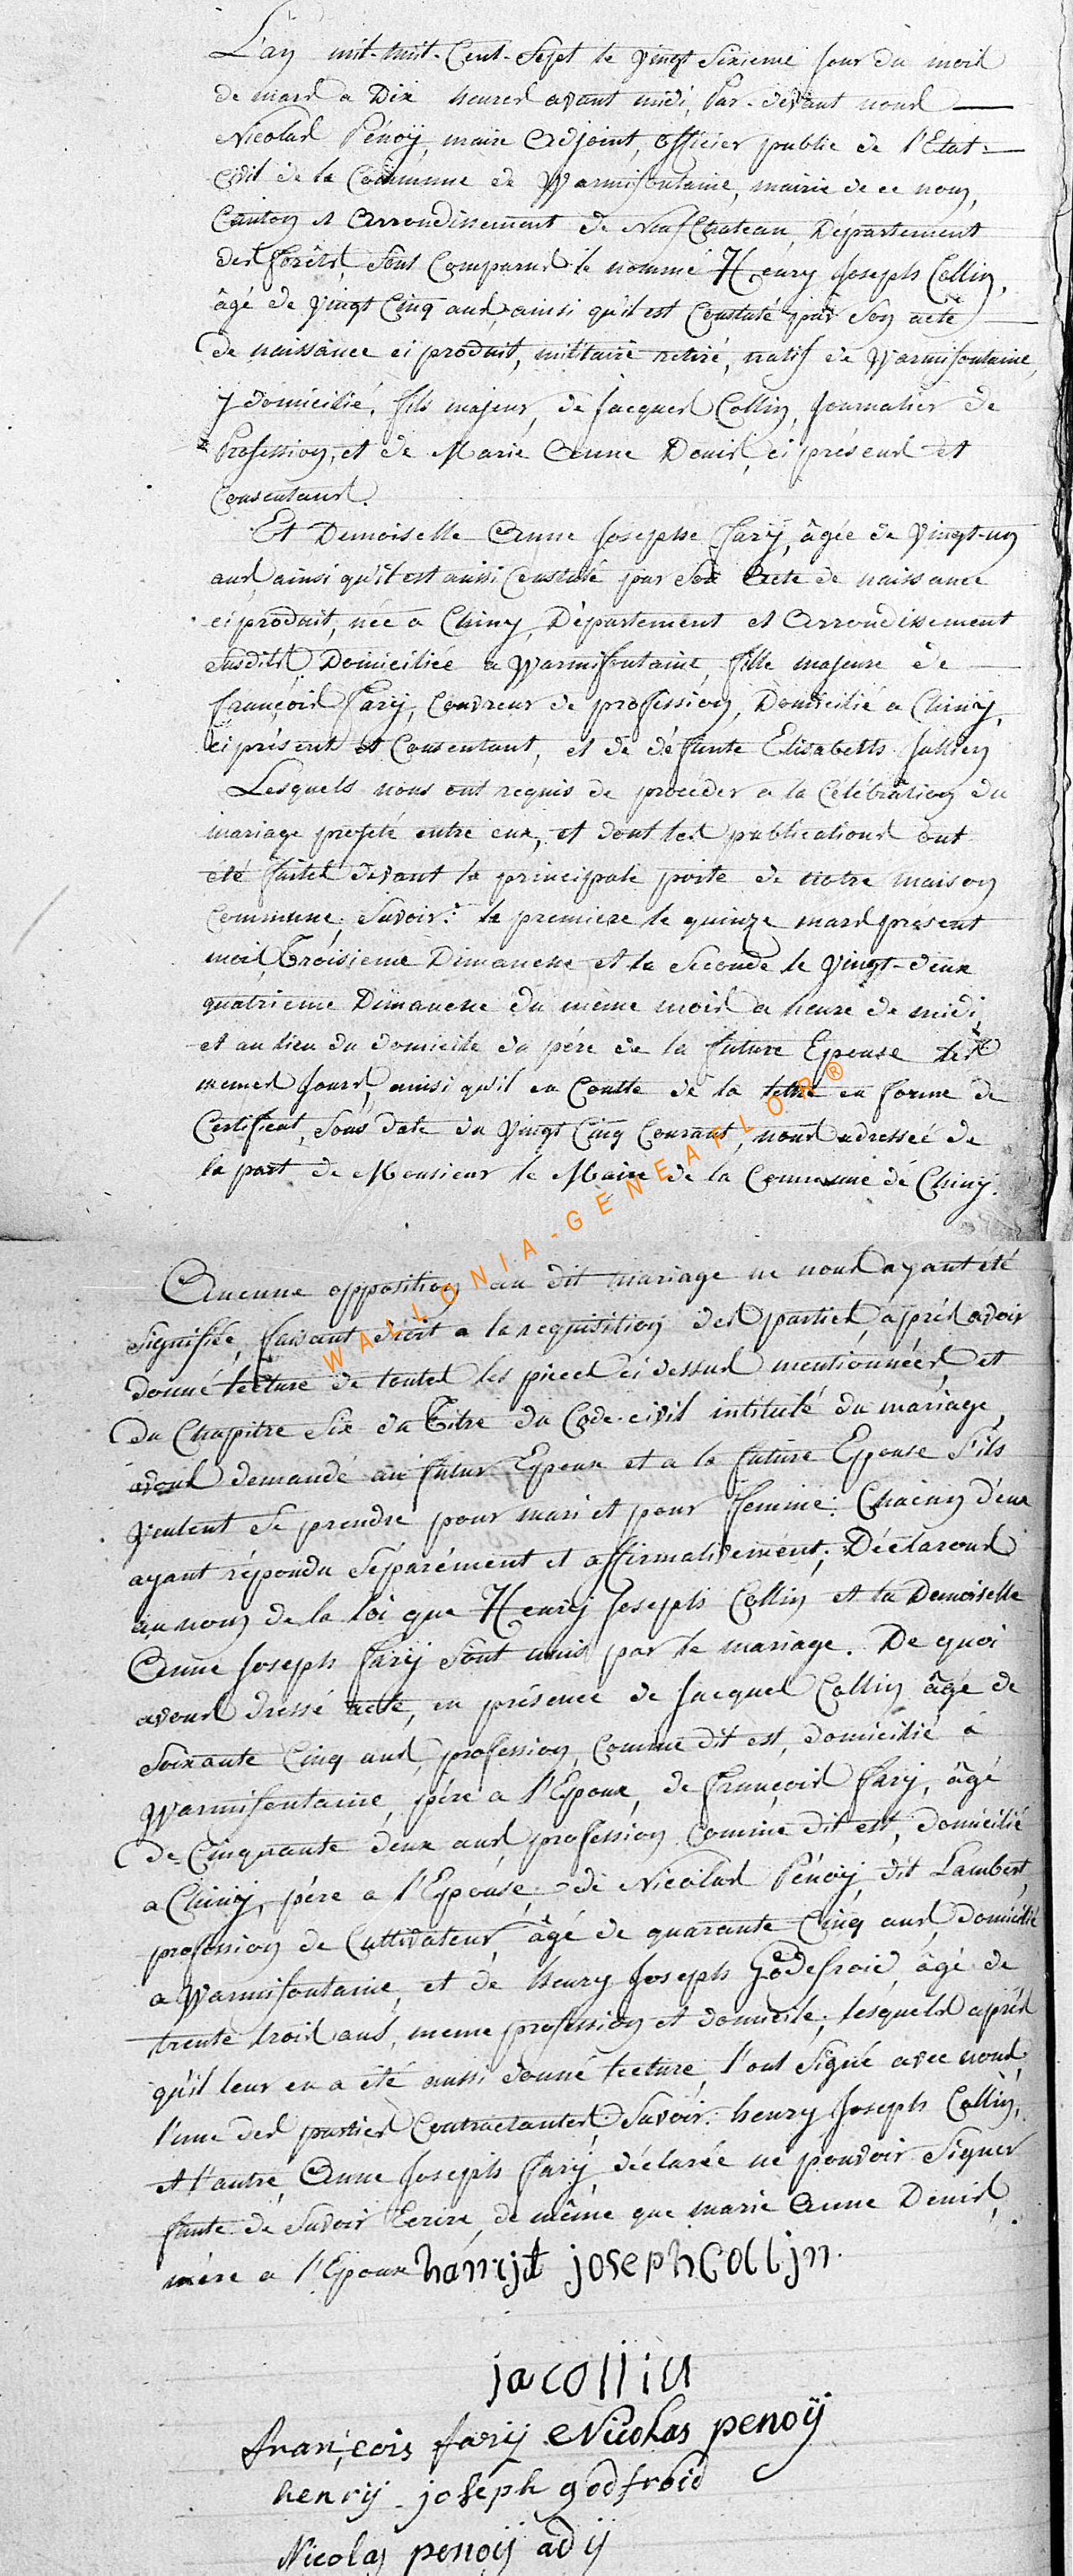 L'an mil-huit-Cent-Sept le vingt Sixieme jour du mois
de mars a Dix heures avant midi, Par-devant nous
Nicolas Pénoÿ, maire Adjoint, officier public de l'Etat=
Civil de la Commune de Warmifontaine, mairie de ce nom,
Canton et Arrondissement de Neufchateau, Département
des forêts, Sont Comparus le nommé Henry Joseph Collin,
âgé de vingt Cinq ans, ainsi qu'il est Constaté par Son acte
de naissance ci produit, militaire retiré, natif de Warmifontaine,
y domicilié, fils majeur, de Jacques Collin, Journalier de
Profession, et de Marie Anne Denis, ci présens et
Consentans.
Et Demoiselle Anne Josephe Farÿ, âgée de vingt-un
ans ainsi qu'il est aussi Constaté par Son Acte de naissance
ci produit, née a Chiny, Département et Arrondissement
susdits Domiciliée a Warmifontaine, fille majeure de
françois Farÿ, Couvreur de profession, Domicilié a Chinÿ,
ci présent et Consentant, et de défunte Elisabeth Jullien
Lesquels nous ont requis de proceder a la Célébration du
mariage projeté entre eux, et dont les publications ont
été faites devant la principale porte de notre maison
Commune, Savoir: la premiere le quinze mars present
mois, Troisieme Dimanche et la Seconde le vingt-deux
quatrieme Dimanche du même mois a heure de midi,
et au lieu du domicile du père de la future Epouse les
memes Jours, ainsi qu'il en Conste de la lettre en forme de
Certificat, Sous date du vingt Cinq Courant, nous adressée de
la part de Monsieur le Maire de la Commune de Chinÿ.
WALLONIA-GENEAFLOR®
Aucune opposition au dit mariage ne nous ayant été
Signifiée, faisant droit a la requisition des parties, après avoir
donné lecture de toutes les pieces ci dessus mentionnées et
du Chapitre Six du Titre du Code-civil intitulé du mariage,
avons demandé au futur Epoux et a la future Epouse S'ils
veulent Se prendre pour mari et pour femme: Chacun d'eux
ayant répondu Séparément et affirmativement; Déclarons
au nom de la loi que Henrÿ Joseph Collin et la Demoiselle
Anne Joseph farÿ Sont unis par le mariage. De quoi
avons dressé acte, en présence de Jacques Collin âgé de
Soixante Cinq ans, profession, Comme dit est, domicilié à
Warmifontaine, père a l'Epoux, de françois farÿ, âgé
de Cinquante deux ans, profession Comme dit est, domicilié
a Chinÿ, père a l'Epouse; de Nicolas Pénoÿ, dit Lambert,
profession de Cultivateur, âgé de quarante Cinq ans, Domicilié
a Warmifontaine, et de henry Joseph Godefroid, âgé de
trente trois ans, meme profession et domicile; lesquels après
qu'il leur en a été aussi donné lecture, l'ont Signé avec nous,
l'une des parties Contractantes, Savoir: henry Joseph Collin,
et l'autre, Anne Joseph Farÿ, déclarée ne pouvoir Signer
faute de Savoir Ecrire, de même que marie Anne Denis,
mère a l'Epoux hanrijt joseph Colljn.
ja collin
françois farij Nicolas penoÿ
henrij joseph godfroid
Nicolas penoÿ adÿ